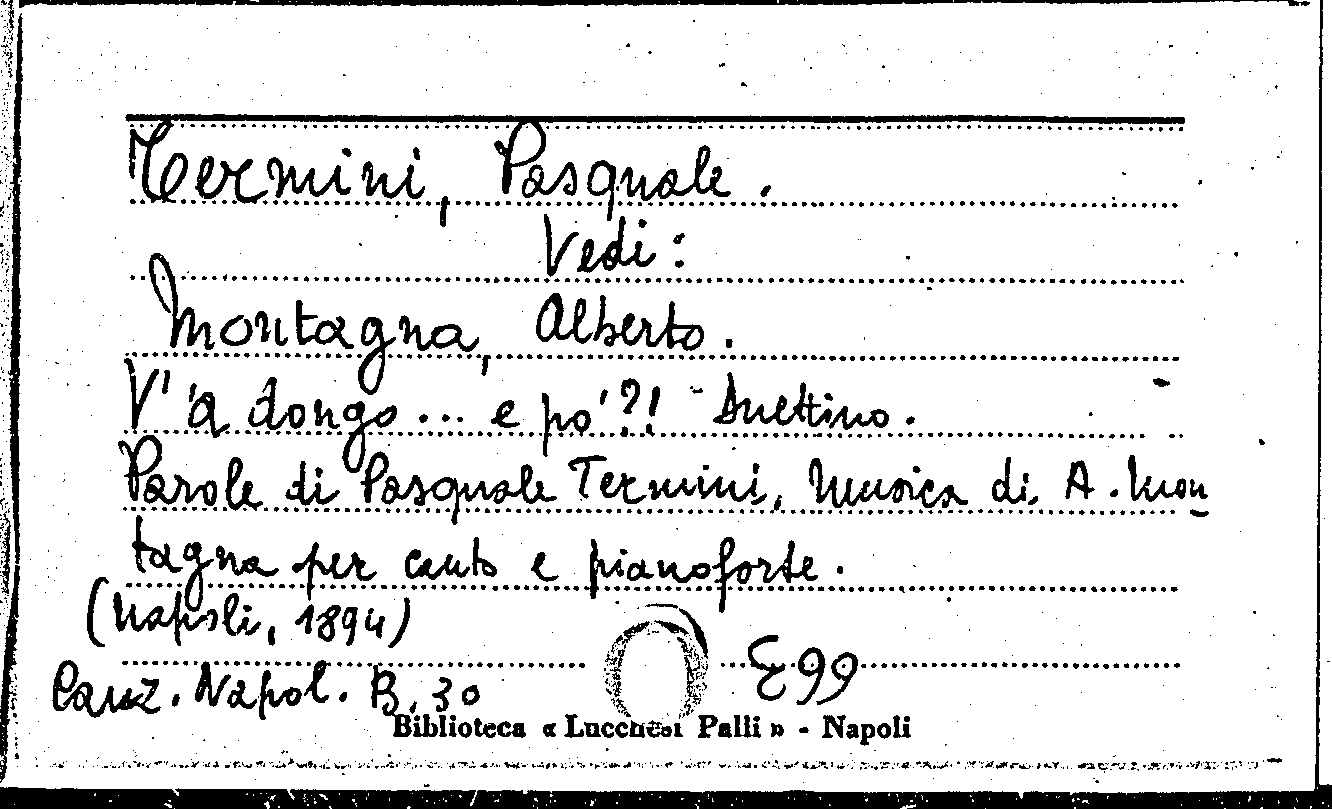 Termini, Pasquale.
Vedi:
Montagna, Alberto.
V' 'a dongo... e po'?! Duettino.
Parole di Pasquale Termini, Musica di A. Mon
tagna per canto e pianoforte.
(Napoli, 1894)
Canz. Napol. B. 30 E99
Biblioteca « Lucchesi Palli » - Napoli